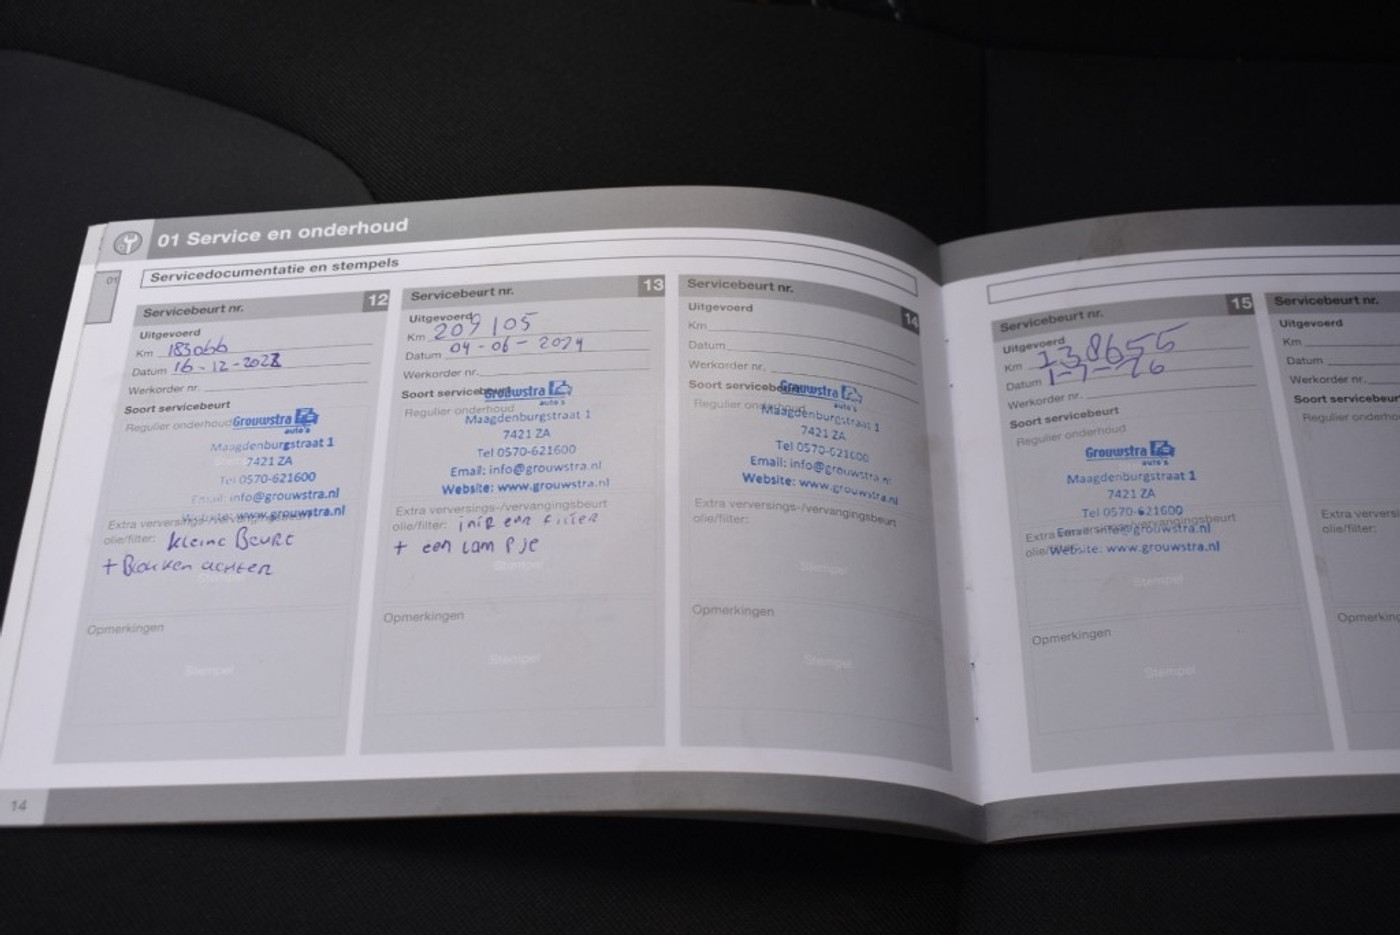 01 Service en onderhoud
01
Servicedocumentatie en stempels
Servicebeurt nr. 12
Uitgevoerd
Km 183066
Datum 16-12-2022
Werkorder nr.
Soort servicebeurt
Regulier onderhoud
Grouwstra
auto's
Maagdenburgstraat 1
7421 ZA
Tel 0570-621600
Email: info@grouwstra.nl
Website: www.grouwstra.nl
Extra verversings-/vervangingsbeurt
olie/filter: kleine Beurt
+ Blokken achter
Opmerkingen
Stempel
Servicebeurt nr. 13
Uitgevoerd
Km 209105
Datum 04-06-2024
Werkorder nr.
Soort servicebeurt
Regulier onderhoud
Grouwstra
auto's
Maagdenburgstraat 1
7421 ZA
Tel 0570-621600
Email: info@grouwstra.nl
Website: www.grouwstra.nl
Extra verversings-/vervangingsbeurt
olie/filter: filter
+ een lampje
Stempel
Opmerkingen
Stempel
Servicebeurt nr. 14
Uitgevoerd
Km
Datum
Werkorder nr.
Soort servicebeurt
Regulier onderhoud
Grouwstra
auto's
Maagdenburgstraat 1
7421 ZA
Tel 0570-621600
Email: info@grouwstra.nl
Website: www.grouwstra.nl
Extra verversings-/vervangingsbeurt
olie/filter:
Stempel
Opmerkingen
Stempel
14
Servicebeurt nr. 15
Uitgevoerd
Km
Datum
Werkorder nr.
Soort servicebeurt
Regulier onderhoud
Grouwstra
auto's
Maagdenburgstraat 1
7421 ZA
Tel 0570-621600
Email: info@grouwstra.nl
Website: www.grouwstra.nl
Extra verversings-/vervangingsbeurt
olie/filter:
Stempel
Opmerkingen
Stempel
Servicebeurt nr.
Uitgevoerd
Km
Datum
Werkorder nr.
Soort servicebeurt
Regulier onderhoud
Extra verversings
olie/filter:
Opmerking